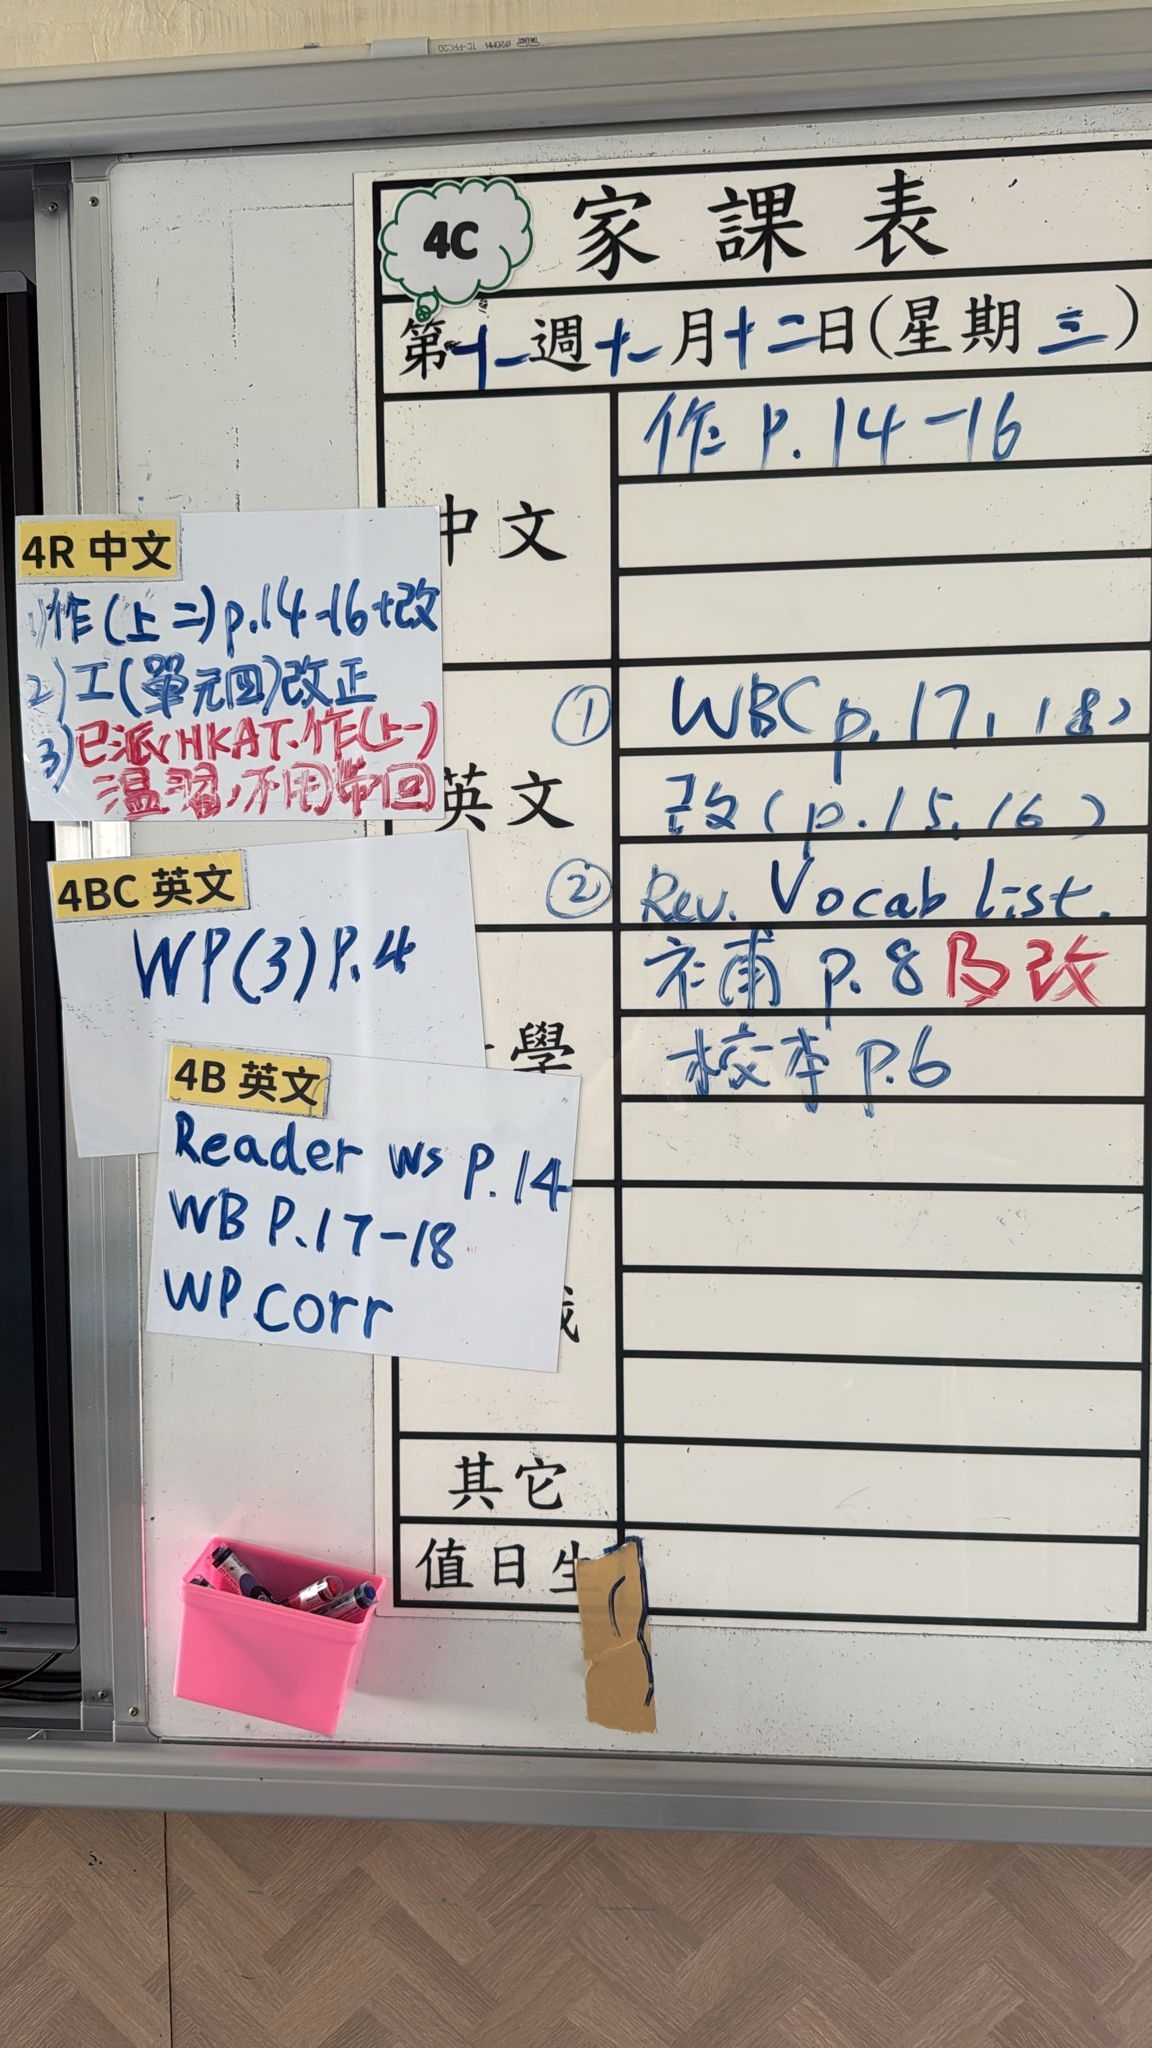 4C
家課表
第十一週十一月十二日(星期三)
中文
作 p.14-16
英文
① WB( p.17,18)
改(p.15,16)
② Rev. Vocab list.
學
補 p.8 B改
校本 p.6
其它
值日生
4R 中文
1)作(上二)p.14-16+改
2)工(單元四)改正
3)已派HKAT、作(上一)
溫習,不用帶回
4BC 英文
WP(3)P.4
4B 英文
Reader WS P.14
WB P.17-18
WP Corr